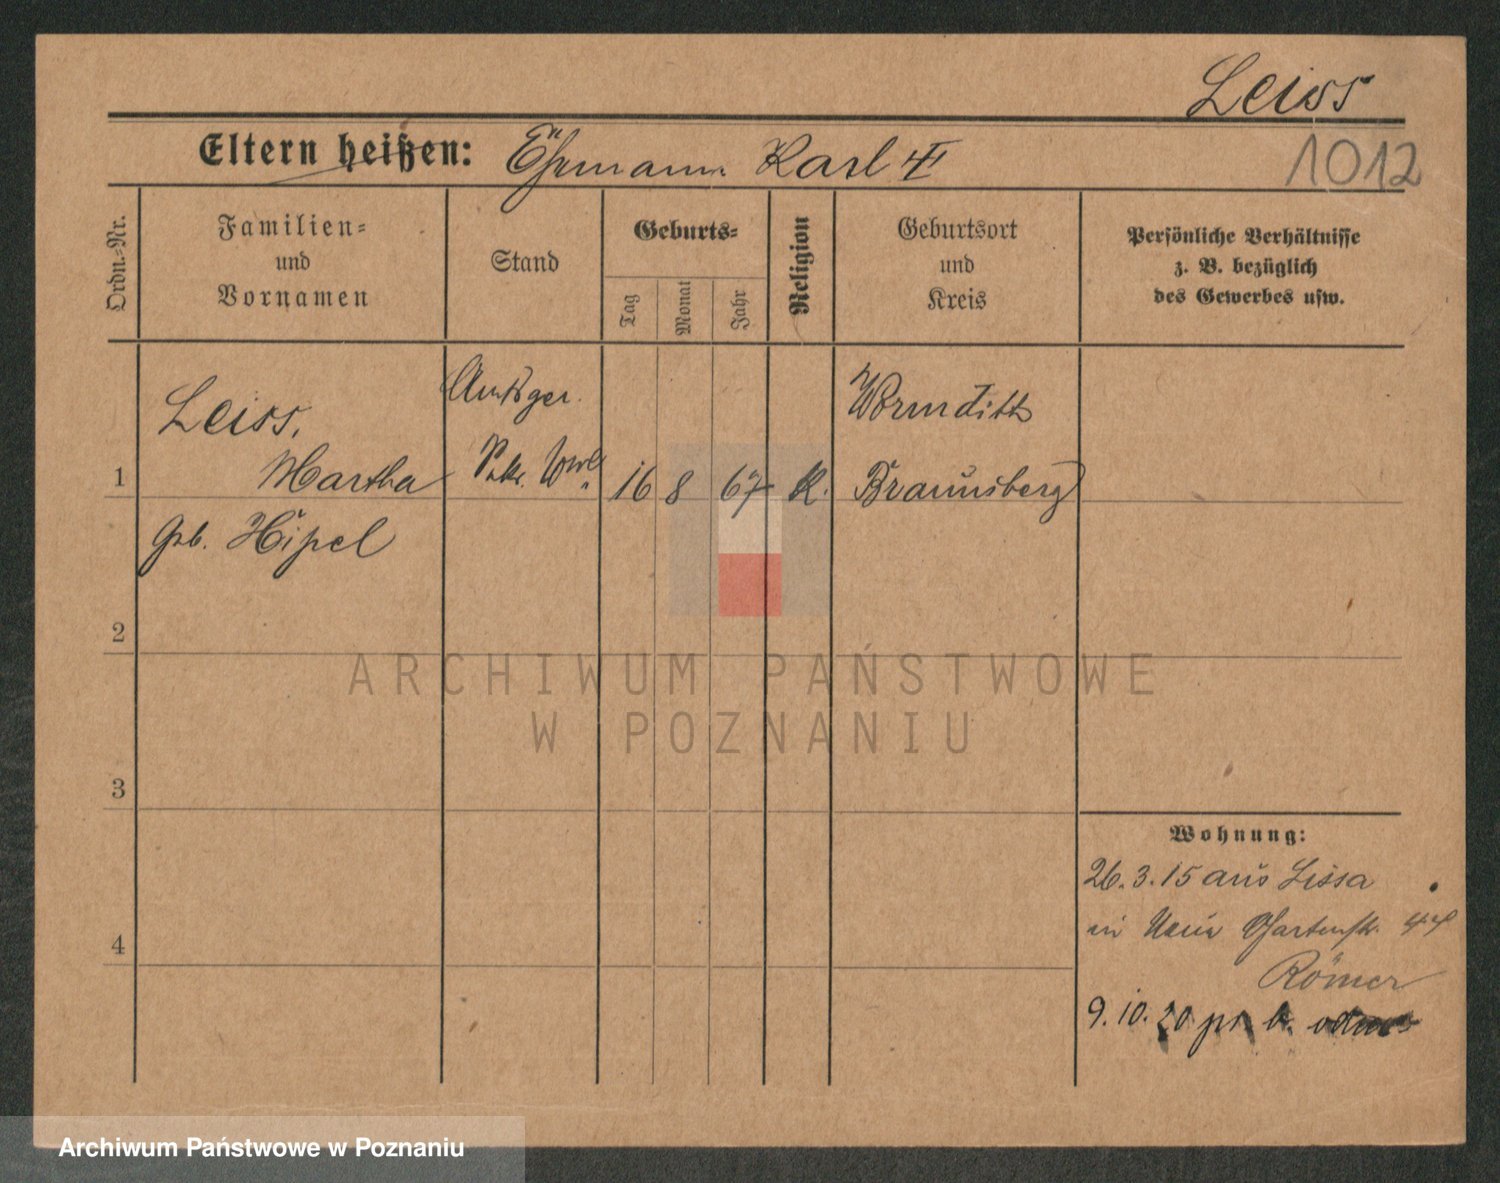 Leiss
Eltern heißen: Ehemann Karl †
1012
Ordn.-Nr.
Familien-
und
Vornamen
Stand
Geburts-
Tag
Monat
Jahr
Religion
Geburtsort
und
Kreis
Persönliche Verhältnisse
z. B. bezüglich
des Gewerbes usw.
1
Leiss,
Martha
geb. Hipel
Amtsger.
Sekr. Wwe
16 8 67 K.
Wormditt
Braunsberg
2
3
4
Wohnung:
26.3.15 aus Lissa
in Neue Gartenstr. 44
Römer
9.10.20
ARCHIWUM PAŃSTWOWE
W POZNANIU
Archiwum Państwowe w Poznaniu